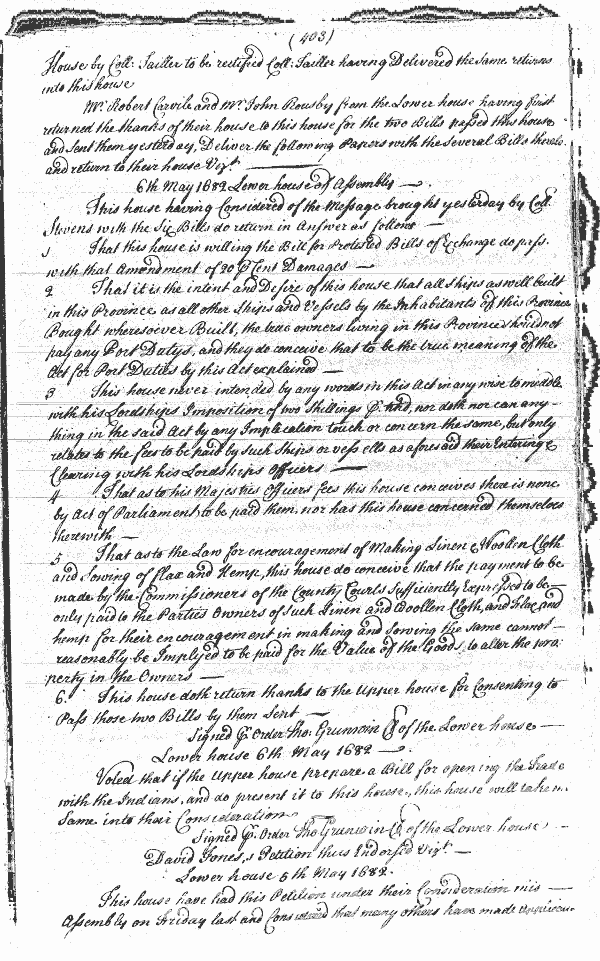 (403)
House by Coll: Tailler to be rectifyed Coll: Tailler having Delivered the same returns
into this house
Mr. Robert Carvile and Mr. John Rousby from the Lower house having first
returned the thanks of their house to this house for the two Bills passed this house
and sent them yesterday, Deliver the following Papers with the Several Bills
and return to their house Vizt.
6th May 1682 Lower house of Assembly
This house having Considered of the Message brought yesterday by Coll.
Stevens with the Six Bills do return in Answer as follows
1 That this house is willing the Bill for Protested Bills of Exchange do pass.
with that Amendment of 20 ⅌ Cent Damages
2 That it is the intent and Desire of this house that all Ships as well built
in this Province as all other Ships and Vessels by the Inhabitants of this Province
Bought wheresoever Built, the true owners living in this Province should not
pay any Port Dutys, and they do conceive that to be the true meaning of the
Act for Port Duties by this Act explained
3 This house never intended by any words in this Act in any wise to meddle
with his Lordships Imposition of two Shillings ⅌ hhd, nor doth nor can any
thing in the said Act by any Implication touch or concern the same, but only
relates to the fees to be paid by such Ships or vessells as aforesaid their Entering &
Clearing with his Lordships Officers
4 That as to his Majesties Officers fees this house conceives there is none
by Act of Parliament to be paid them, nor has this house concerned themselves
therewith
5 That as to the Law for encouragement of Making Linen & Woollen Cloth
and Sowing of flax and Hemp, this house do conceive that the payment to be
made by the Commissioners of the County Courts Sufficiently Expressed to be
only paid to the Parties Owners of such Linen and Woollen Cloth, and Flax and
hemp for their encouragement in making and sowing the same cannot
reasonably be Implyed to be paid for the Value of the Goods, to alter the pro:
perty in the Owners
6. This house doth return thanks to the Upper house for Consenting to
Pass those two Bills by them Sent
Signed ⅌ Order Tho: Grunwin Cl of the Lower house
Lower house 6th May 1682
Voted that if the Upper house prepare a Bill for opening the Trade
with the Indians, and do present it to this house, this house will take the
Same into their Consideration
Signed ⅌ Order Tho Grunwin Cl of the Lower house
David Jones,s Petition thus Endorsed Vizt.
Lower house 5th May 1682.
This house have had this Petition under their Consideration this
Assembly on Friday last and Considered that many others have made